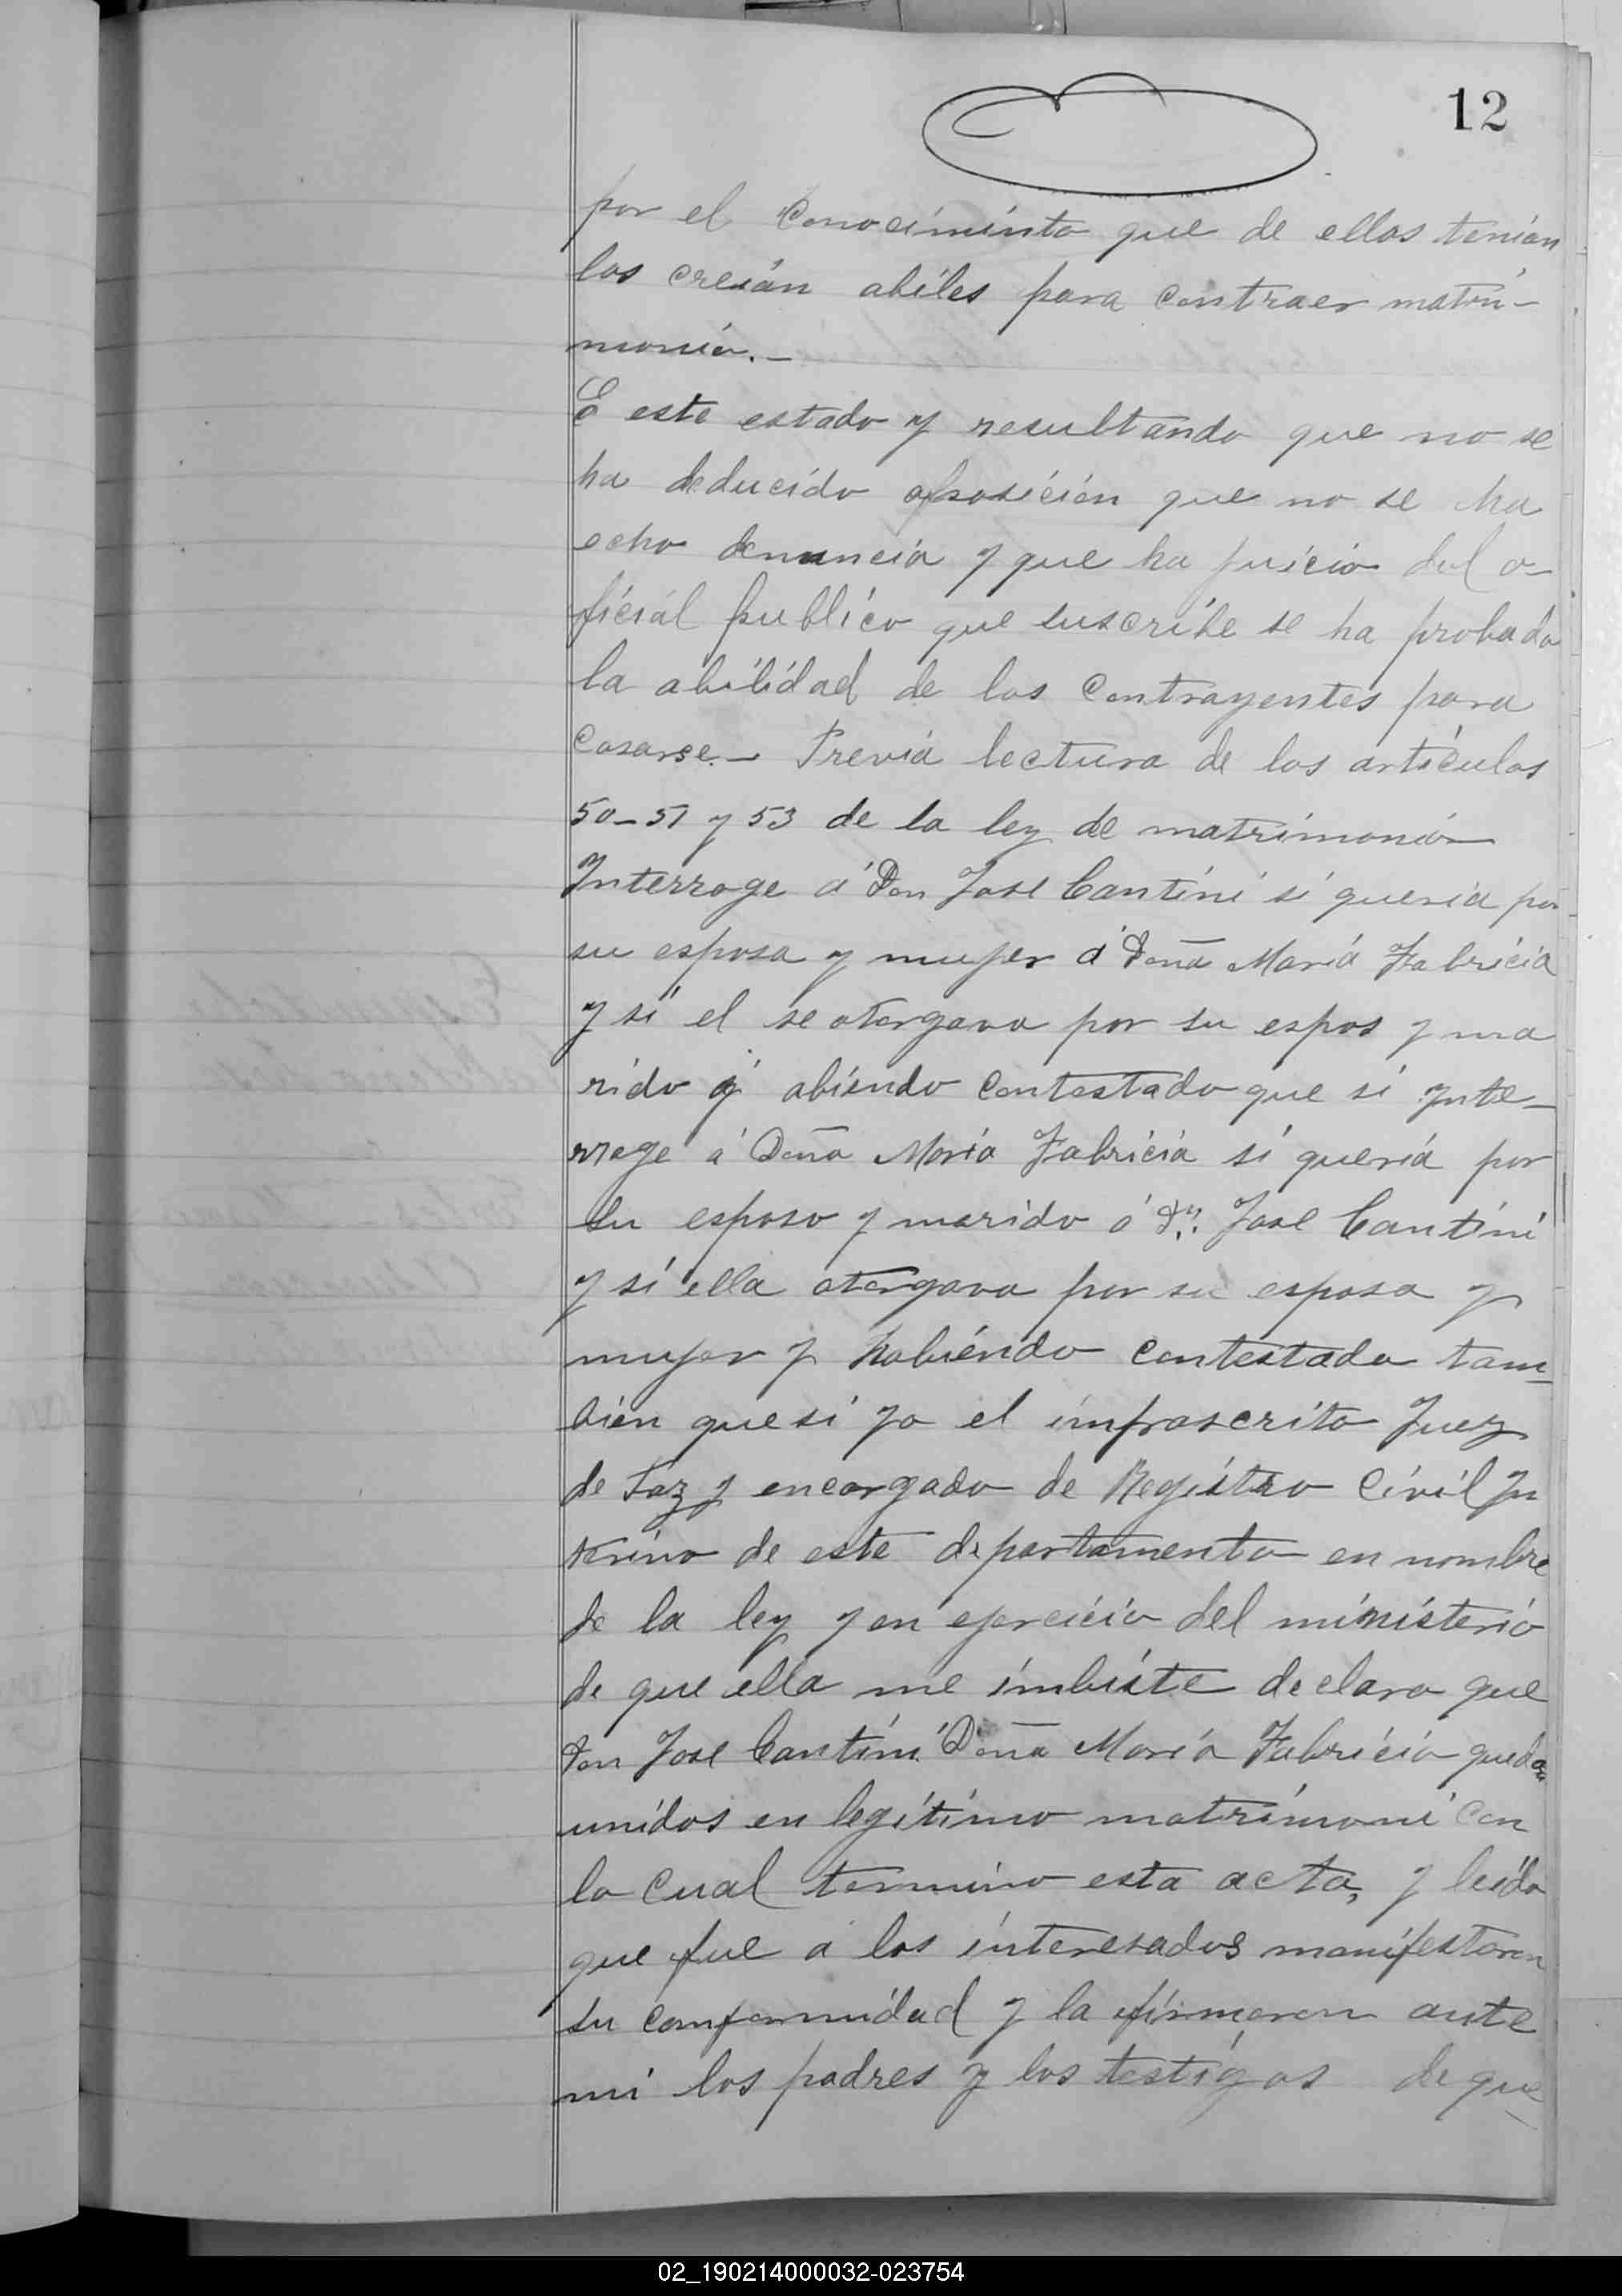 12
por el Conocimiento que de ellos tenian
los creián abiles para Contraer matri-
monio.-
E este estado y resultando que no se
ha deducido oposición que no se ha
echo denuncia y que ha juicio del o-
ficial publico que suscribe se ha probado
la abilidad de los Contrayentes para
Casarse.- Previa lectura de los articulos
50-51 y 53 de la ley de matrimonio
Interroge á Don Jose Cantini si queria por
su esposa y mujer á Doña Maria Fabricia
y si el se otorgava por su espos y ma
rido y abiendo Contestado que si Inte-
rroge á Doña Maria Fabricia si queria por
su esposo y marido á Dn. Jose Cantini
y si ella otorgava por su esposa y
mujer y habiendo Contestado tam-
bien que si yo el imfrascrito Juez
de Paz y encargado de Registro Civil In
terino de este departamento en nombre
de la ley y en ejercicio del ministerio
de que ella me imbiste declaro que
Don Jose Cantini Doña Maria Fabricia quedan
unidos en legitimo matrimoni Con
lo Cual termino esta acta, y leida
que fue a los interesados manifestaron
su comformidad y la firmaron ante
mi los padres y los testigos de que
02_190214000032-023754